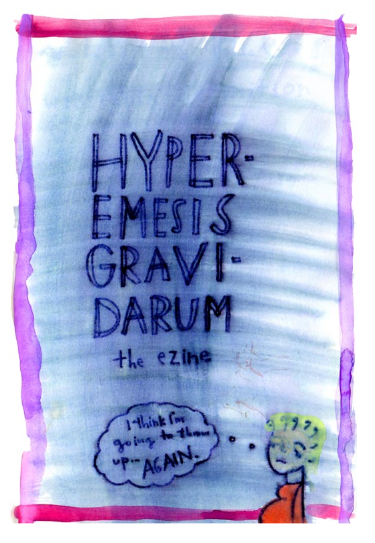 HYPER-
EMESIS
GRAVI-
DARUM
the ezine
I think I'm
going to throw
up... AGAIN.